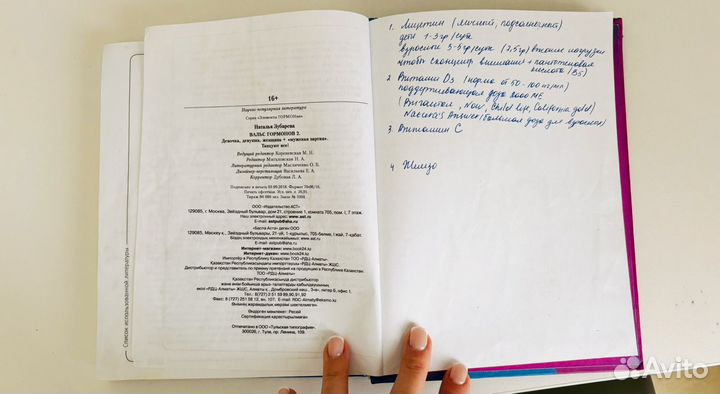 Список использованной литературы
16+
Научно-популярная литература
Серия «Элементы ГОРМОНии»
Наталья Зубарева
ВАЛЬС ГОРМОНОВ 2.
Девочка, девушка, женщина + «мужская партия».
Танцуют все!
Ведущий редактор М. Н.
Редактор М. А.
Литературный редактор О. Е.
Дизайнер-верстальщик Васильева Е. А.
Корректор Дубовая Л. А.
Подписано в печать 03.09.2018. Формат 70x90/16.
Печать офсетная. Усл. печ. л.
Тираж экз. Заказ №
ООО «Издательство АСТ»
129085, г. Москва, Звёздный бульвар, дом 21, строение 1, комната 705, пом. I, 7 этаж.
Наш электронный адрес: www.ast.ru
E-mail: astpub@aha.ru
«Баспа Аста» деген ООО
129085, Мәскеу қ., Звёздный бульвары, 21-үй, 1-құрылыс, 705-бөлме, I жай, 7-қабат.
Біздің электрондық мекенжайымыз: www.ast.ru
E-mail: astpub@aha.ru
Интернет-магазин: www.book24.kz
Интернет-дүкен: www.book24.kz
Импортёр в Республику Казахстан ТОО «РДЦ-Алматы».
Қазақстан Республикасындағы импорттаушы «РДЦ-Алматы» ЖШС.
Дистрибьютор и представитель по приему претензий на продукцию в Республике Казахстан:
ТОО «РДЦ-Алматы»
Қазақстан Республикасында дистрибьютор
және өнім бойынша арыз-талаптарды қабылдаушының
өкілі «РДЦ-Алматы» ЖШС, Алматы қ., Домбровский көш., 3«а», литер Б, офис 1.
Тел.: 8 (727) 2 51 59 89,90,91,92
Факс: 8 (727) 251 58 12, вн. 107; E-mail: RDC-Almaty@eksmo.kz
Өнімнің жарамдылық мерзімі шектелмеген.
Өндірген мемлекет: Ресей
Сертификация қарастырылмаған
Отпечатано в ООО «Тульская типография».
300026, г. Тула, пр. Ленина, 109.
1. Лицетин (яичный, подсолнечный)
дети 1-3 гр/сутки
взрослые 3-5 гр/сутки (7,5 гр) высокие нагрузки
чтобы внимание + пантотеновая
кислота (B5)
2. Витамин D3 (норма от 50-100 нг/мл)
поддерживающая доза 2000 МЕ
( , Now, Child Life, California gold)
Nature's Answer (большая доза для взрослых)
3. Витамин C
4 Железо
Avito